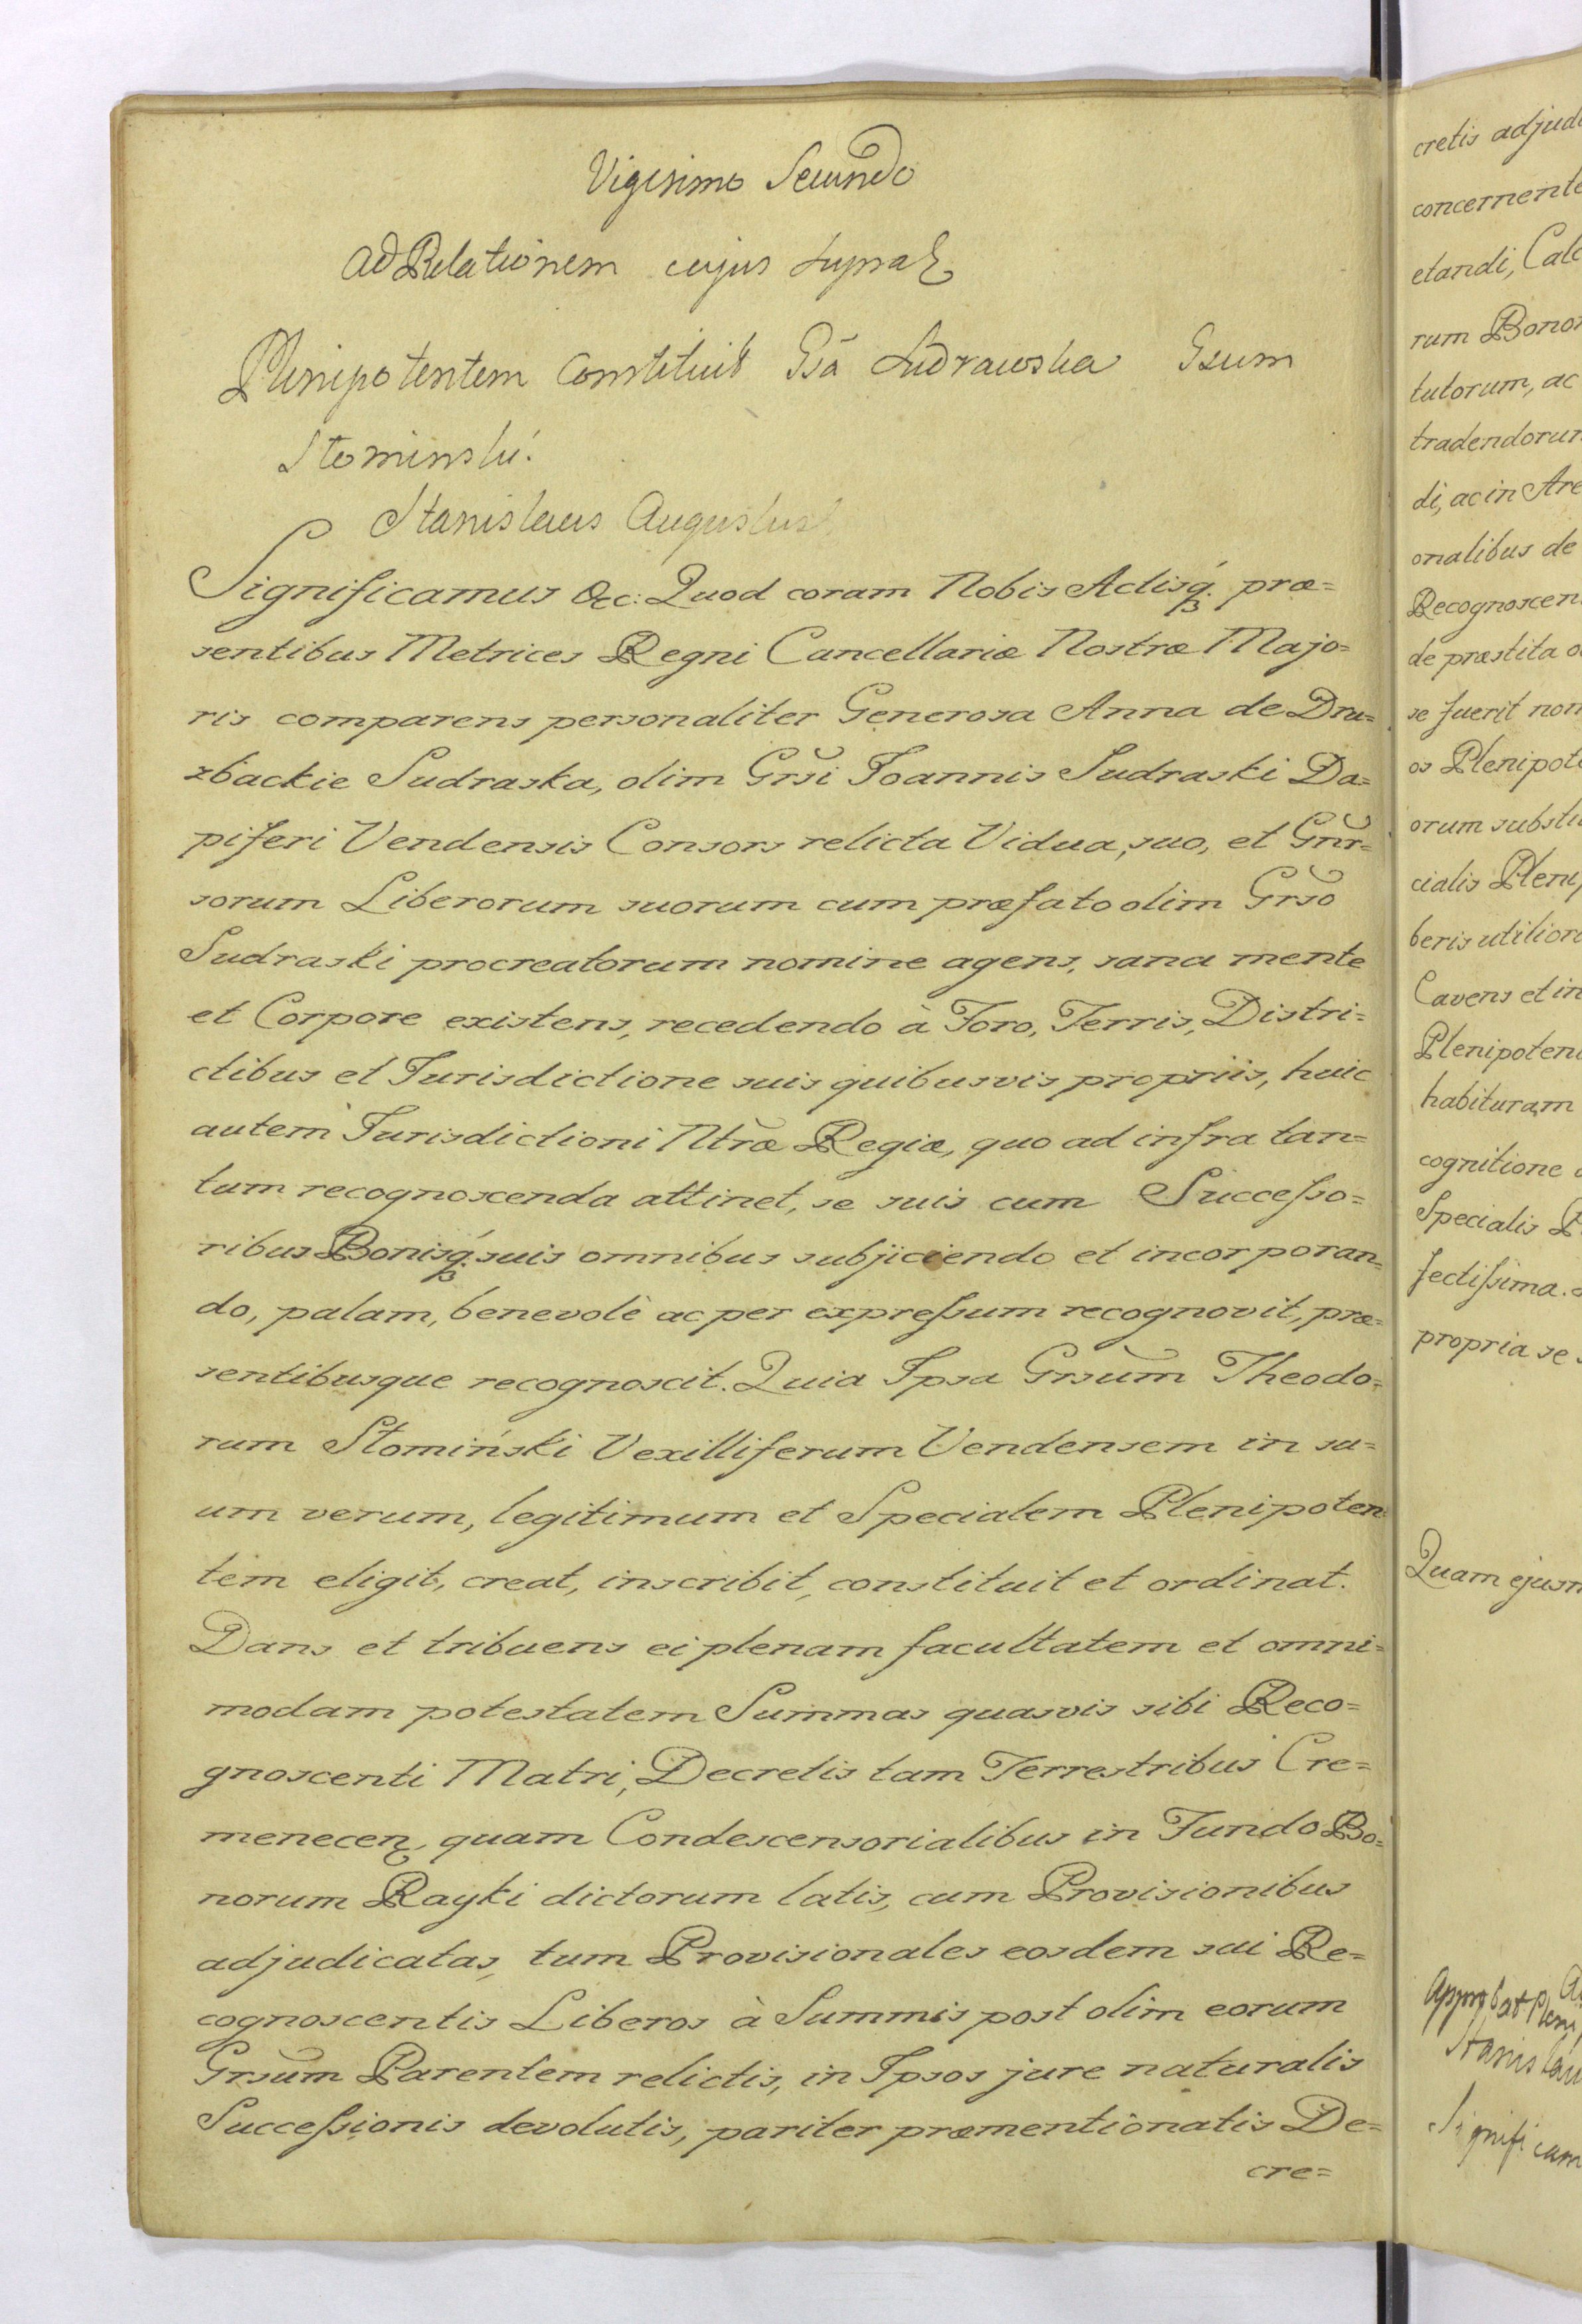 Vigesimo Secundo
Ad Relationem cujus supra
Plenipotentem Constituit Gsa Sudrawska Gsum
Słominski.
Stanislaus Augustus
Significamus &c: Quod coram Nobis Actisq́ præ=
sentibus Metrices Regni Cancellariæ Nostræ Majo=
ris comparens personaliter Generosa Anna de Dru=
zbackie Sudraska, olim Grsi Joannis Sudraski Da=
piferi Vendensis Consors relicta Vidua, suo, et Gnr=
sorum Liberorum suorum cum præfato olim Grso
Sudraski procreatorum nomine agens, sana mente
et Corpore existens, recedendo à Foro, Terris, Distri=
ctibus et Jurisdictione suis quibusvis propriis, huic
autem Jurisdictioni Ntræ Regiæ, quo ad infra tan=
tum recognoscenda attinet, se suis cum Successo=
ribus Bonisq́ suis omnibus subjiciendo et incorporan=
do, palam, benevolè ac per expressum recognovit, præ=
sentibusque recognoscit. Quia Ipsa Grsum Theodo=
rum Słomiński Vexilliferum Vendensem in su=
um verum, legitimum et Specialem Plenipoten
tem eligit, creat, inscribit, constituit et ordinat.
Dans et tribuens ei plenam facultatem et omni=
modam potestatem Summas quasvis sibi Reco=
gnoscenti Matri, Decretis tam Terrestribus Cre=
menecen, quam Condescensorialibus in Fundo Bo=
norum Rayki dictorum latis, cum Provisionibus
adjudicatas, tum Provisionales eosdem sui Re=
cognoscentis Liberos à Summis post olim eorum
Grsum Parentem relictis, in Ipsos jure naturalis
Successionis devolutis, pariter præmentionatis De=
cre=
cretis adjud
concernente
etandi, Calc
rum Bonor
tutorum, ac
tradendorum
di, ac in Are
onalibus de
Recognoscen
de præstita
se fuerit non
os Plenipote
orum substi
cialis Plenip
beris utilior
Cavens et in
Plenipoten
habituram
cognitione
Specialis
fectissima.
propria se
Quam ejusm
Approbat Pleni
Stanislau
Significam